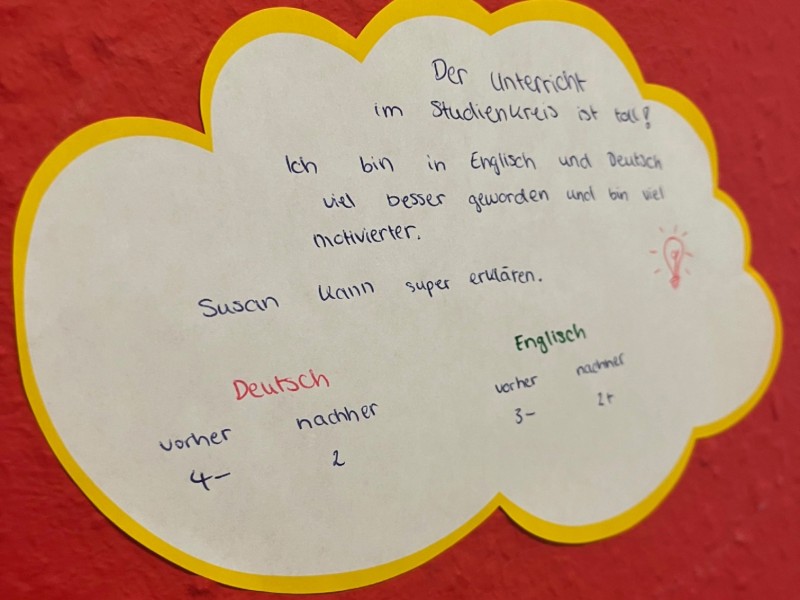 Der Unterricht
im Studienkreis ist toll!
Ich bin in Englisch und Deutsch
viel besser geworden und bin viel
motivierter.
Susan kann super erklären.
Englisch
vorher nachher
3- 2+
Deutsch
vorher nachher
4- 2